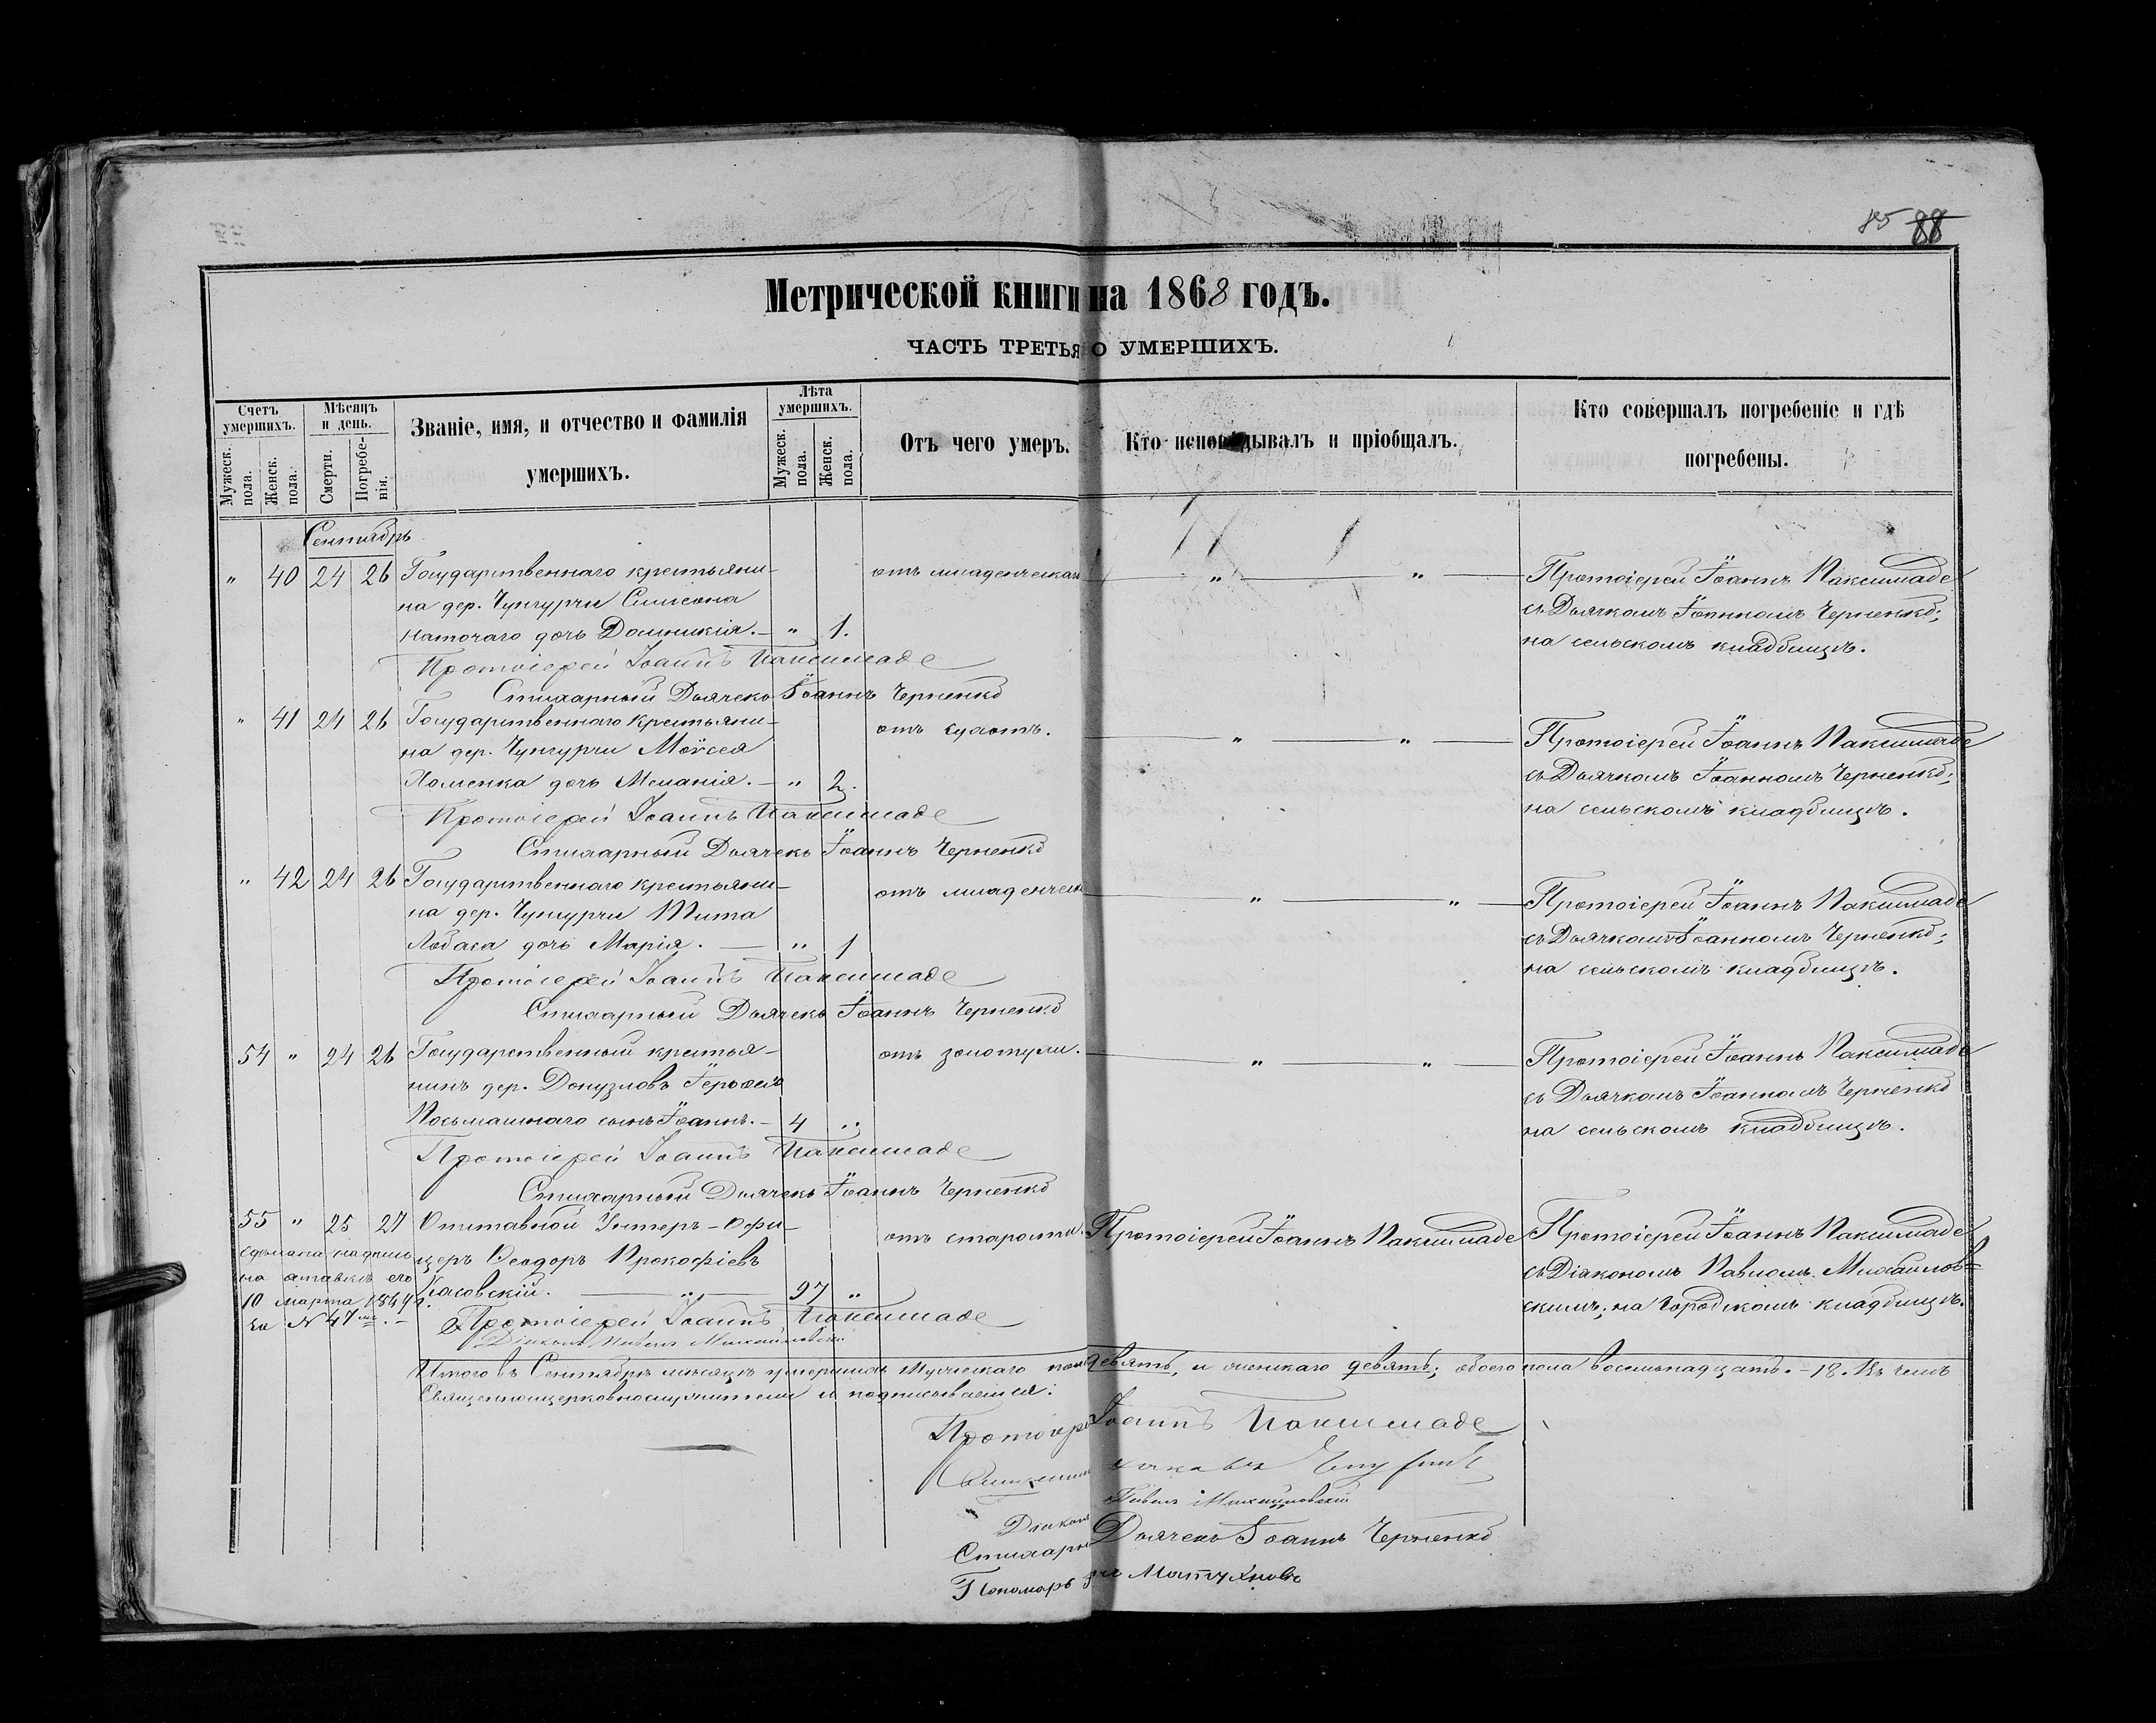 85 88
Метрической книги на 1868 годъ.
ЧАСТЬ ТРЕТЬЯ О УМЕРШИХЪ.
Счетъ умершихъ.
Мужеск. пола.
Женск. пола.
Мѣсяцъ и день.
Смерти.
Погребенія.
Званіе, имя, и отчество и фамилія
умершихъ.
Лѣта умершихъ.
Мужеск. пола.
Женск. пола.
Отъ чего умеръ.
Кто исповѣдывалъ и пріобщалъ.
Кто совершалъ погребеніе и гдѣ
погребены.
Сентябрь
" 40 24 26 Государственнаго крестьяни- отъ младенческаго " " Протоіерей Іоаннъ Паксимаде
на дер. Чунгурчи Симеона съ Дьячкомъ Іоанномъ Черненко;
дочь Домникія. - " 1. на сельскомъ кладбищѣ.
Протоіерей Іоаннъ Паксимаде
Стихарный Дьячекъ Іоаннъ Черненко
" 41 24 26 Государственнаго крестьяни- " " Протоіерей Іоаннъ Паксимаде
на дер. Чунгурчи Моѵсея съ Дьячкомъ Іоанномъ Черненко;
дочь Меланія. - " 2. на сельскомъ кладбищѣ.
Протоіерей Іоаннъ Паксимаде
Стихарный Дьячекъ Іоаннъ Черненко
" 42 24 26 Государственнаго крестьяни- отъ младенческ " " Протоіерей Іоаннъ Паксимаде
на дер. Чунгурчи Тита съ Дьячкомъ Іоанномъ Черненко;
Лобаса дочь Марія. - " 1 на сельскомъ кладбищѣ.
Протоіерей Іоаннъ Паксимаде
Стихарный Дьячекъ Іоаннъ Черненко
54 " 24 26 Государственный крестья- отъ золотухи. " " Протоіерей Іоаннъ Паксимаде
нинъ дер. Донузловъ съ Дьячкомъ Іоанномъ Черненко
сынъ Іоаннъ. - 4 " на сельскомъ кладбищѣ.
Протоіерей Іоаннъ Паксимаде
Стихарный Дьячекъ Іоаннъ Черненко
55 " 25 27 Отставной Унтеръ-Офи- отъ старости. Протоіерей Іоаннъ Паксимаде Протоіерей Іоаннъ Паксимаде
церъ Ѳеодоръ Прокофіевъ съ Діакономъ Павломъ Михайлов-
Касовскій. " 97 " скимъ; на Городскомъ кладбищѣ.
сдѣлана надпись
на отставкѣ его
10 марта
за № 47
Протоіерей Іоаннъ Паксимаде
Діаконъ Павелъ Михайловскій
Итого въ Сентябрѣ мѣсяцѣ умершихъ Мужескаго пола девять, и женскаго девять; обоего пола восемнадцать. - 18. Въ чемъ
Священноцерковнослужители и подписываемся:
Протоіерей Іоаннъ Паксимаде
Діаконъ Павелъ Михайловскій
Стихарный Дьячекъ Іоаннъ Черненко
Пономарь